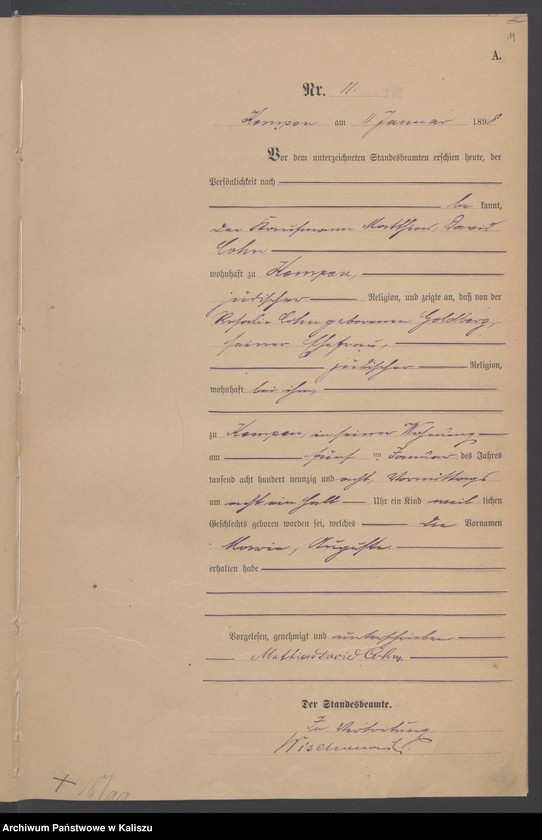 M
A.
Nr. 11.
Kempen am 11 Januar 1898
Vor dem unterzeichneten Standesbeamten erschien heute, der
Persönlichkeit nach
be kannt,
der Kaufmann Mathias David
Cohn
wohnhaft zu Kempen,
jüdischer Religion, und zeigte an, daß von der
Rosalie Cohn geborenen Goldberg,
seiner Ehefrau,
jüdischer Religion,
wohnhaft bei ihm,
zu Kempen, in seiner Wohnung
am fünf ten Januar des Jahres
tausend acht hundert neunzig und acht Vormittags
um acht ein halb Uhr ein Kind weib lichen
Geschlechts geboren worden sei, welches die Vornamen
Marie, Auguste
erhalten habe
Vorgelesen, genehmigt und unterschrieben
David Cohn
Der Standesbeamte.
In Vertretung
Archiwum Państwowe w Kaliszu